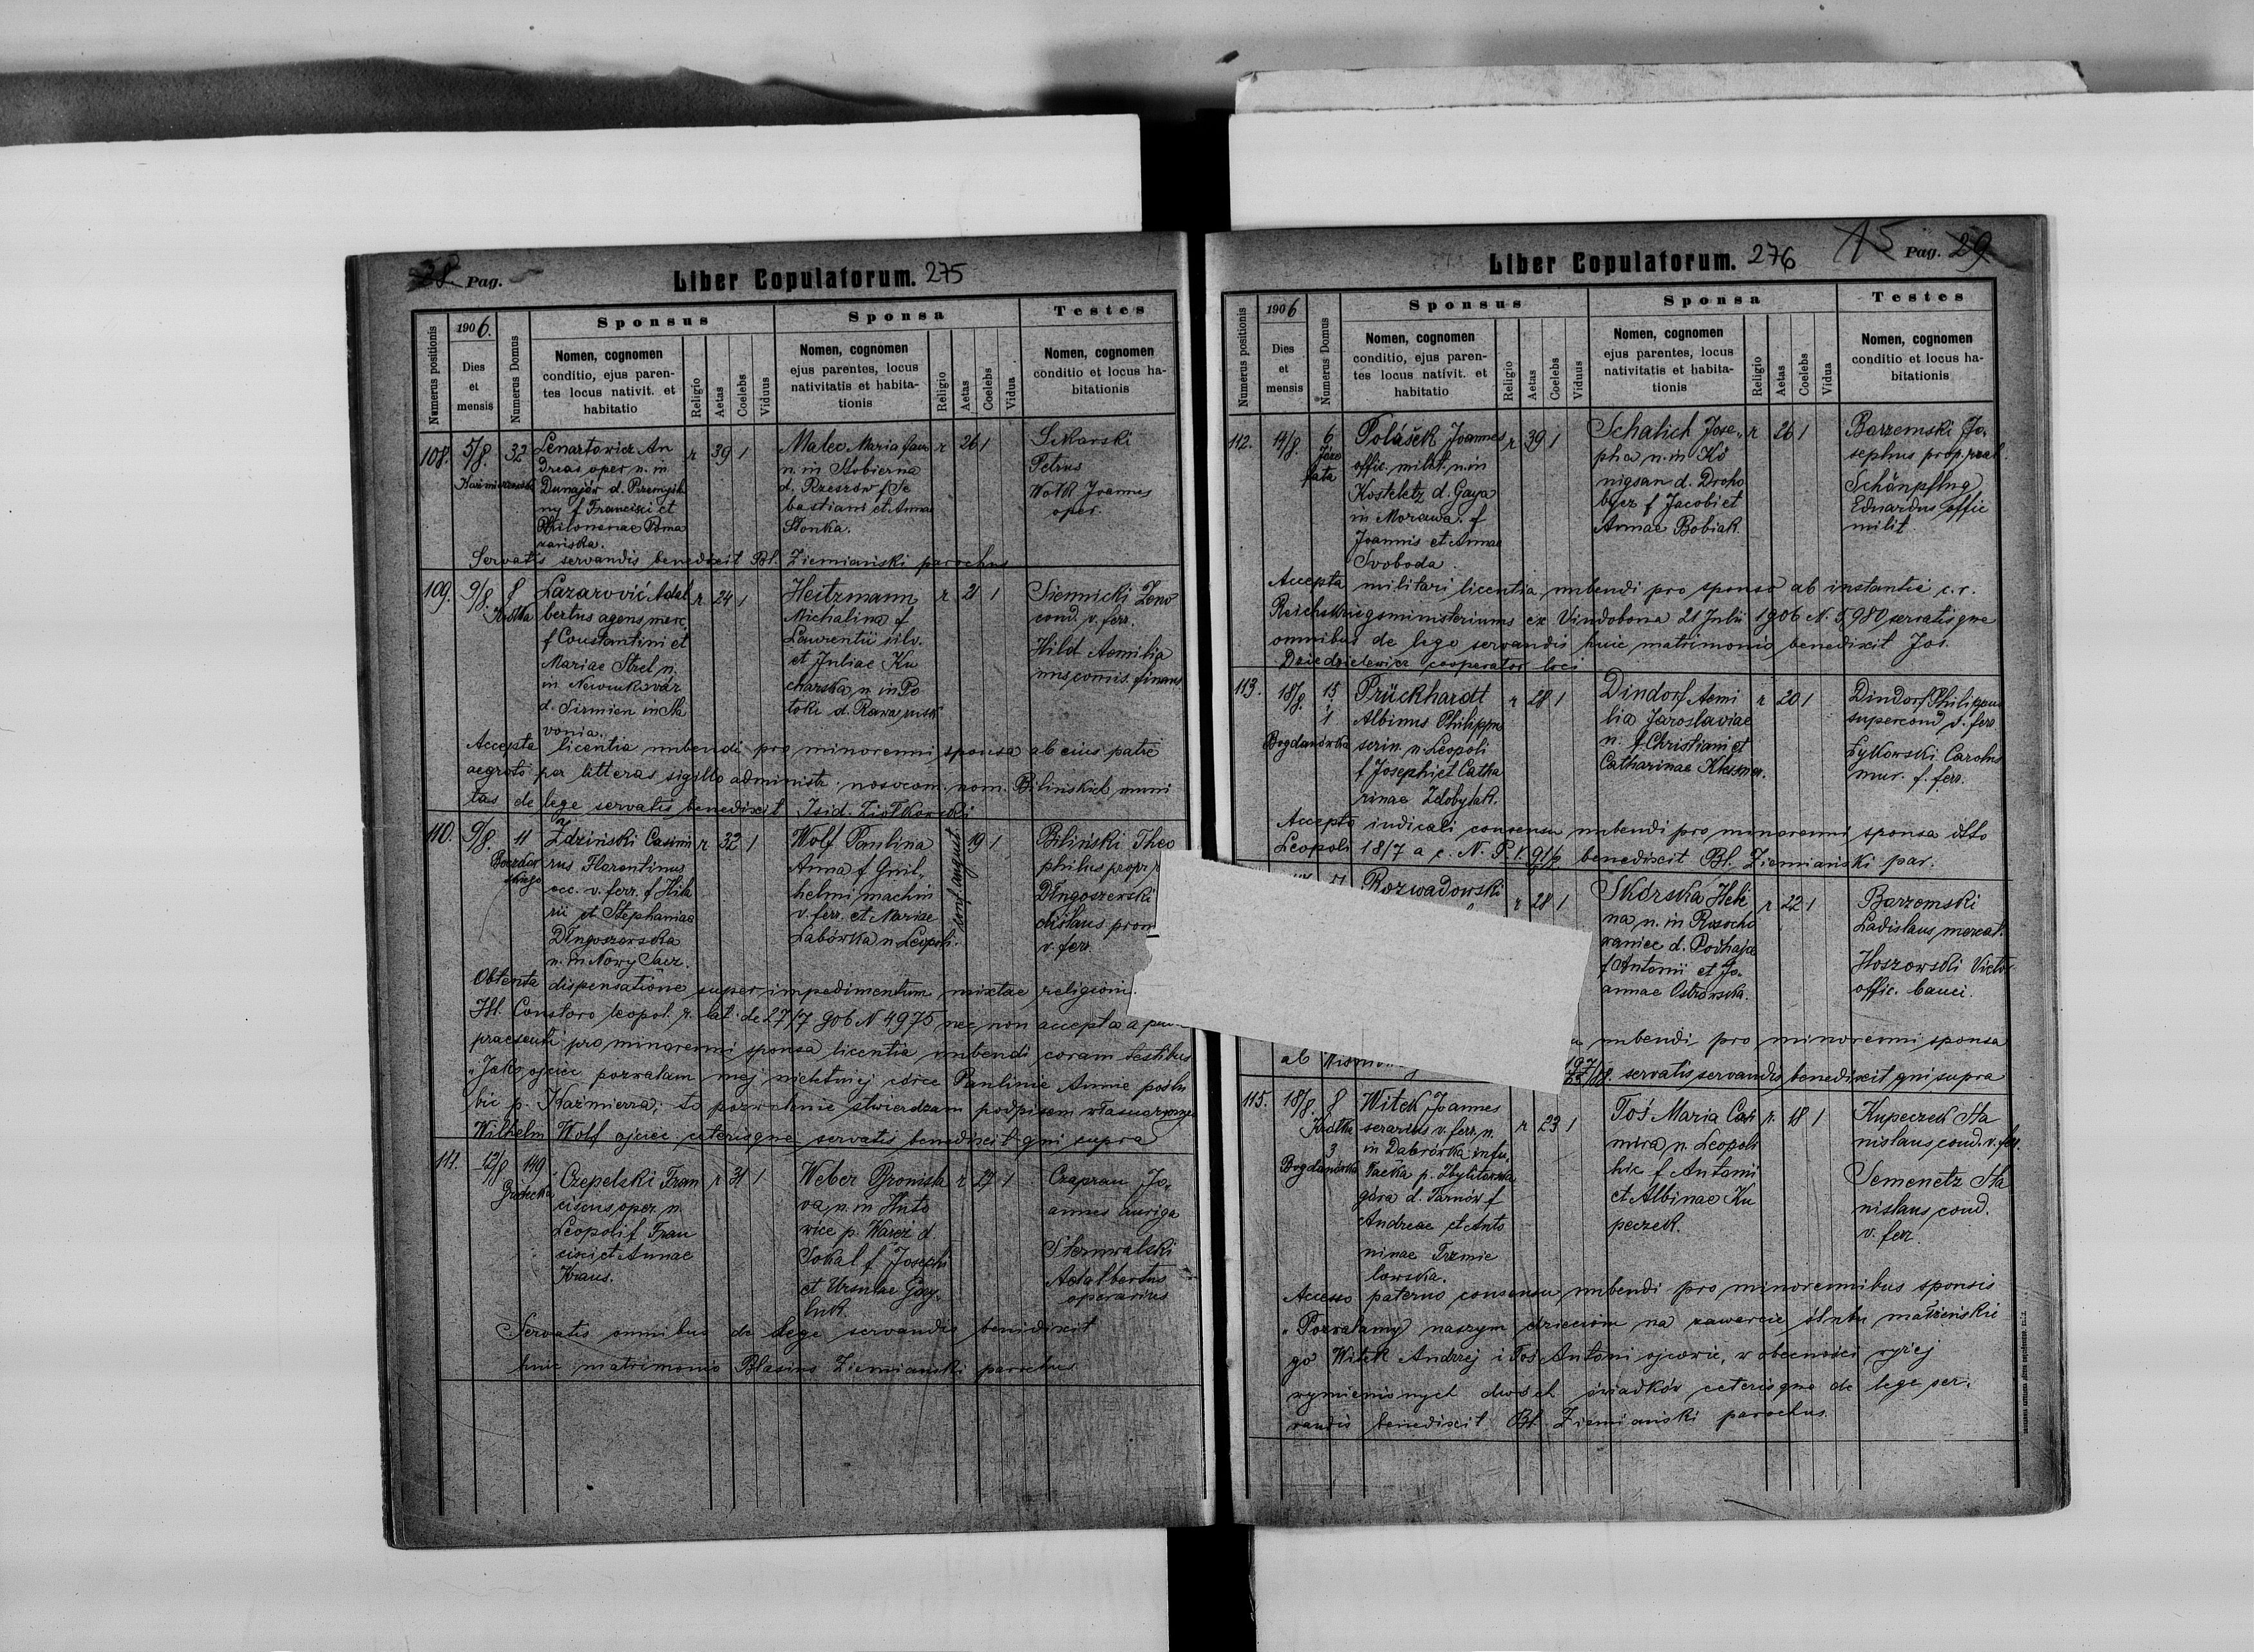 28. Pag.
Liber Copulatorum. 275
Numerus positionis
1906.
Dies
et
mensis
Numerus Domus
Sponsus
Nomen, cognomen
conditio, ejus paren-
tes locus nativit. et
habitatio
Religio
Aetas
Coelebs
Viduus
Sponsa
Nomen, cognomen
ejus parentes, locus
nativitatis et habita-
tionis
Religio
Aetas
Coelebs
Vidua
Testes
Nomen, cognomen
conditio et locus ha-
bitationis
108.
5/8.
32
Lenartowicz An
dreas oper. n. in
Dunajów d. Przemyśla
ny f Francisci et
Philomenae
r 39 1
Malec Maria
n. in Stobierna
d. Rzeszów f Se
bastiani et Annae
Słonka.
r 26 1
Sikorski
Petrus
Wołk Joannes
oper.
Servatis servandis benedixit Bł. Ziemiański parochus
109.
9/8.
8
Krótka
Lazarović Adal
bertus agens merc.
f Constantini et
Mariae Stel n.
in
d. Sirmien in Sla
vonia.
r 24 1
Heitzmann
Michalina f
Laurentii silv.
et Juliae Ku
charska n. in Po
toki d. Rawa rusk
r 21 1
Siennicki Zeno
cond. v. ferr.
Hild Aemilia
Accepta licentia nubendi pro minorenni sponsa ab eius patre
aegroto per litteras sigillo administr. nosocom. nom. Bilinskich muni
tas de lege servatis benedixit Isid. Ziołkowski
110.
9/8.
11
Zdziński Casimi
rus Florentinus
v. ferr. f Hila
rii et Stephaniae
Długoszowska
n. in Nowy Sacz.
r 32 1
Wolf Paulina
Anna f Guil-
helmi machin
v. ferr. et Mariae
Labówka n Leopoli.
conf. august
19 1
Biliński Theo
philus propr.
Długoszewski
dislaus
v. ferr.
Obtenta dispensatione super impedimentum mixtae religioni.
Consistoro leopol. r. lat. de 27/7 906 N 4975 nec non accepta a
praesenti pro minorenni sponsa licentia nubendi coram testibus
„Jako ojciec pozwalam mej nieletniej córce Paulinie Annie poślu
bić p. Kaźmierza; to pozwolenie stwierdzam podpisem własnoręcznym
Wilhelm Wolf ojciec ceterisque servatis benedixit qui supra
111.
12/8
149
Czepelski Fran
ciscus oper. n.
Leopoli f Fran
cisci et Annae
Kraus.
r 31 1
Weber Bronisła
va n. in Huto
wice p. Waręż d
Sokal f Josephi
et Ursulae
r 27 1
Czapran Jo-
annes auriga
Adalbertus
operarius
Servatis omnibus de lege servandis benedixit
huic matrimonio Blasius Ziemianski parochus
Liber Copulatorum. 276
15 Pag. 29.
Numerus positionis
1906
Dies
et
mensis
Numerus Domus
Sponsus
Nomen, cognomen
conditio, ejus paren-
tes locus nativit. et
habitatio
Religio
Aetas
Coelebs
Viduus
Sponsa
Nomen, cognomen
ejus parentes, locus
nativitatis et habita-
tionis
Religio
Aetas
Coelebs
Vidua
Testes
Nomen, cognomen
conditio et locus ha-
bitationis
112.
14/8.
6
Józe
fata
Polášek Joannes
offic. milit. n. in
Kosteletz d. Gaya
in Morawa. f
Joannis et Annae
Svoboda.
r 39 1
Schalich Jose-
pha n. in Kö
nigsau d. Droho
bycz f Jacobi et
Annae Bobiak.
r 26 1
Barzemski Jo-
sephus prop. real.
Schönpflug
Eduardus offic
milit
Accepta militari licentia nubendi pro sponso ab instantie c. r.
Reichskriegsministeriums ex Vindobona 21 Julii 1906 N. 5980 servatisque
omnibus de lege servandis huic matrimonio benedixit Jos.
Dziedzielewicz cooperator loci
113.
18/8.
15
1
Bogdanówka
Prückhardt
Albinus Philippus
n. Leopoli
f Josephi et Catha
rinae Zdobylak.
r 28 1
Dindorf Aemi
lia Jaroslaviae
n. f. Christiani et
Catharinae
r 20 1
Dindorf Philippus
supercond v. ferr
Łykowski Carolus
mur. f. ferr.
Accepto iudicali consensu nubendi pro minorenni sponsa dtto
Leopoli 18/7 a c. N. P. V. benedixit Bł. Ziemiański par.
Rozwadowski
r 28 1
Skórska Hele
na n. in Rosocho
waniec d. Podhajce
f Antonii et Jo-
annae Ostrowska.
r 22 1
Barzemski
Ladislaus mercat.
Hoszowski Victor
offic. banci.
nubendi pro minorenni sponsa
ab
servatis servandis benedixit qui supra
115.
18/8.
8
Krótka
3
Bogdanówka
Witek Joannes
serarius v. ferr. n.
in Dabrówka infu-
łacka p. Zbylitowska
góra d. Tarnów f
Andreae et Anto
ninae Trzmie
lowska.
r 23 1
Toś Maria Casi
mira n. Leopoli
hic f Antonii
et Albinae Ku
peczek.
r. 18 1
Kupeczek Sta
nislaus cond. v. ferr.
Semenetz Sta
nislaus cond.
v. ferr.
Accesso paterno consensu nubendi pro minorennibus sponsis
„Pozwalamy naszym dzieciom na zawarcie ślubu małżeńskie
go Witek Andrzej i Toś Antoni ojcowie, w obecności wyżej
wymienionych dwóch świadków ceterisque de lege ser-
vandis benedixit Bł. Ziemiański parochus.